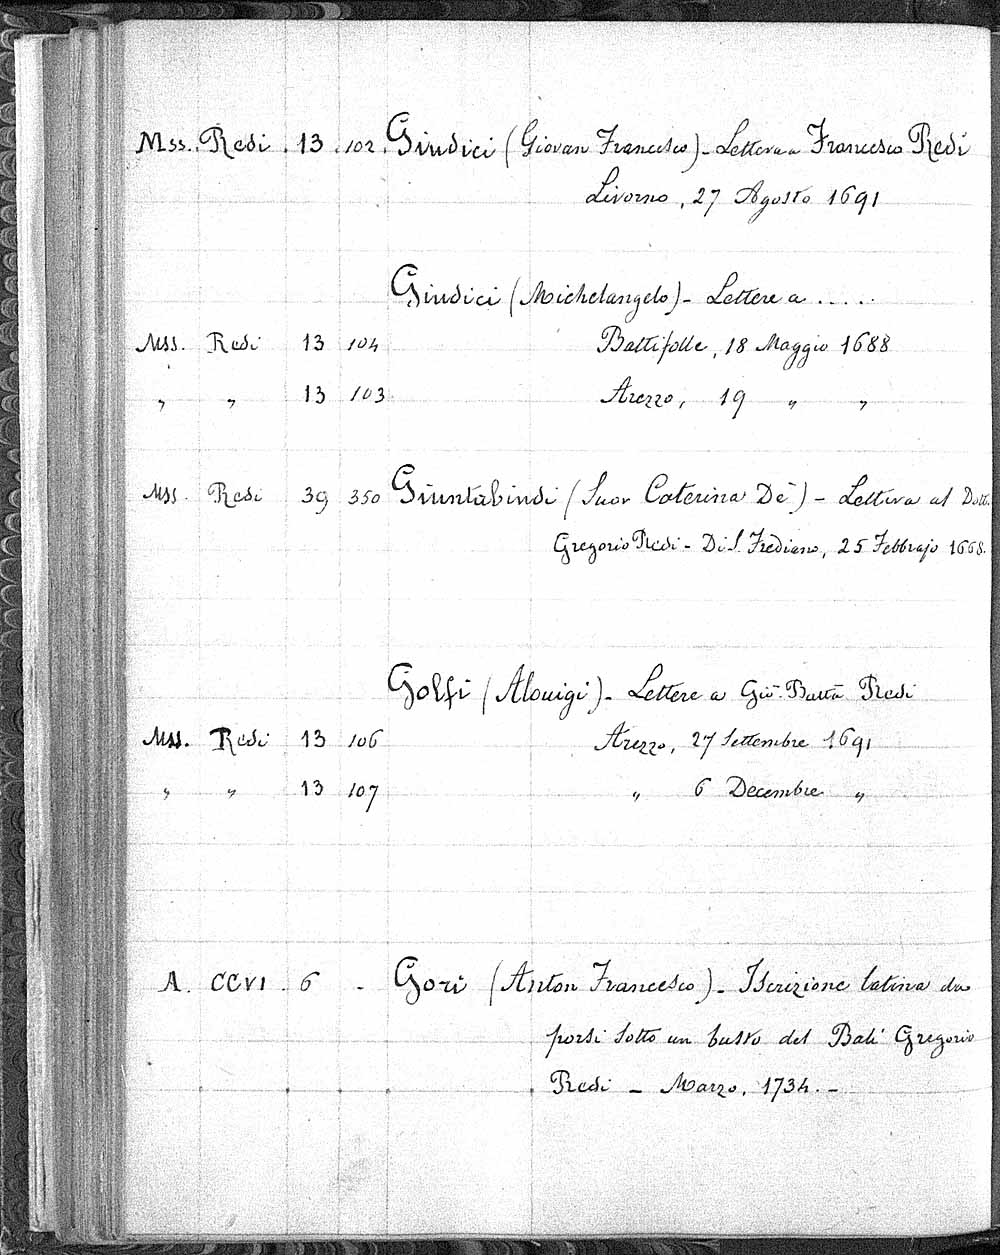 Mss. Redi . 13 . 102 . Giudici (Giovan Francesco) - Lettera a Francesco Redi
Livorno, 27 Agosto 1691
Giudici (Michelangelo) - Lettere a .....
Mss. Redi 13 104 Battifolle, 18 Maggio 1688
„ „ 13 103 Arezzo, 19 „ „
Mss. Redi 39 350 Giuntabindi (Suor Caterina De') - Lettera al Dott.
Gregorio Redi - Di S. Frediano, 25 Febbrajo 1668.
Golfi (Alouigi) - Lettere a Gio. Batta Redi
Mss. Redi 13 106 Arezzo, 27 Settembre 1691
„ „ 13 107 „ 6 Decembre „
A. CCVI . 6 - Gori (Anton Francesco) - Iscrizione latina da
porsi sotto un busto del Balì Gregorio
Redi - Marzo, 1734. -